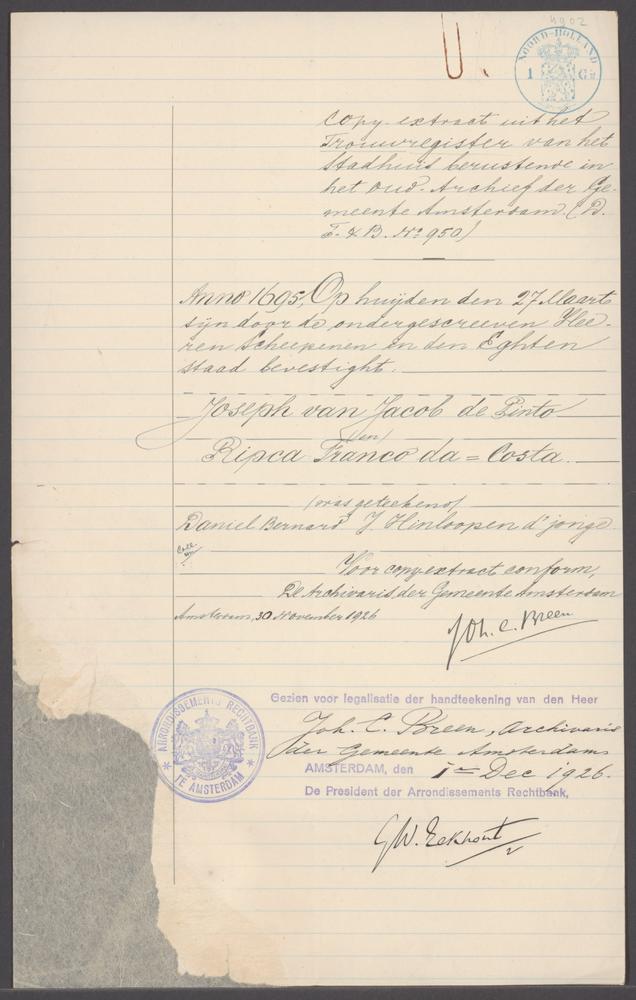 4902
NOORD-HOLLAND
1 Gn
Copy-extract uit het
Trouwregister van het
Stadhuis berustende in
het Oud-Archief der Ge-
meente Amsterdam. (D.
T. & B. No 950)
Anno 1695, Op huijden den 27 Maart
sijn door de ondergescreeven Hee-
ren Scheepenen in den Eghten
staad bevestight.
Joseph van Jacob de Pinto
(en)
Ripca Franco da = Costa.
(was geteekend)
Daniel Bernard J. Hinloopen d'jonge
Coll.
Voor copy-extract conform,
De Archivaris der Gemeente Amsterdam
Amsterdam, 30 November 1926
Joh. C. Breen
Gezien voor legalisatie der handteekening van den Heer
Joh. C. Breen, Archivaris
der Gemeente Amsterdam
AMSTERDAM, den 1en Dec 1926.
De President der Arrondissements Rechtbank,
ARRONDISSEMENTS RECHTBANK
TE AMSTERDAM
GW. Eekhout